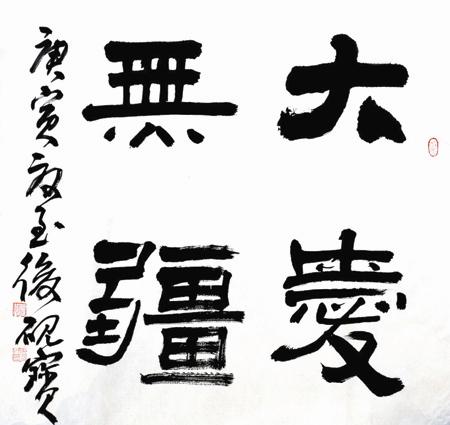 大愛
無疆
庚寅夏至後硯寶